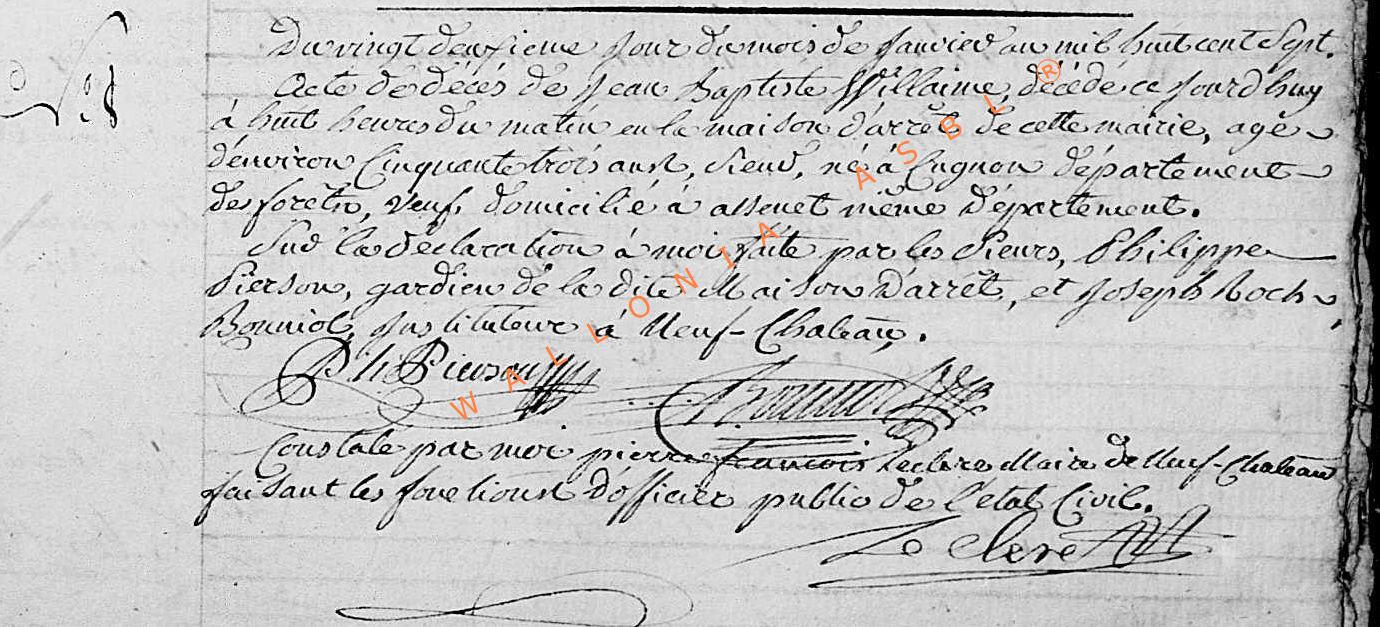 Du vingt deuxieme jour du mois de Janvier an mil huit cent Sept.
Acte de décés de Jean Baptiste Willaime, décédé ce jourd'huy
à huit heures du matin en la maison d'arrêt de cette mairie, agé
d'environ Cinquante trois ans, né à Cugnon département
des forêts, veuf, domicilié à assenet même département.
Sur la déclaration à moi faite par les Sieurs, Philippe
Pierson, gardien de la dite Maison d'arrêt, et Joseph Roch
Bonniol, Instituteur à Neuf-Chateau.
Ph Pierson
Bonniol
Constaté par moi pierre francois Leclere Maire de Neuf-Chateau
faisant les fonctions d'officier public de l'état Civil.
Le Clere
WALLONIA ASBL ®